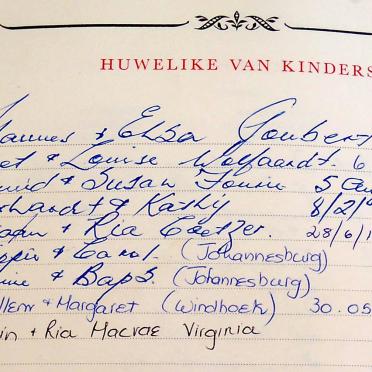 HUWELIKE VAN KINDERS
annes & Elsa Joubert
et & Louise Wolfaardt. 6
& Susan Fourie 5
hardt & Kathy 8/2/
& Ria Coetzer. 28/6/1
& Carol. (Johannesburg)
ine & Babs. (Johannesburg)
illem & Margaret (Windhoek) 30.05
in + Ria Macrae Virginia